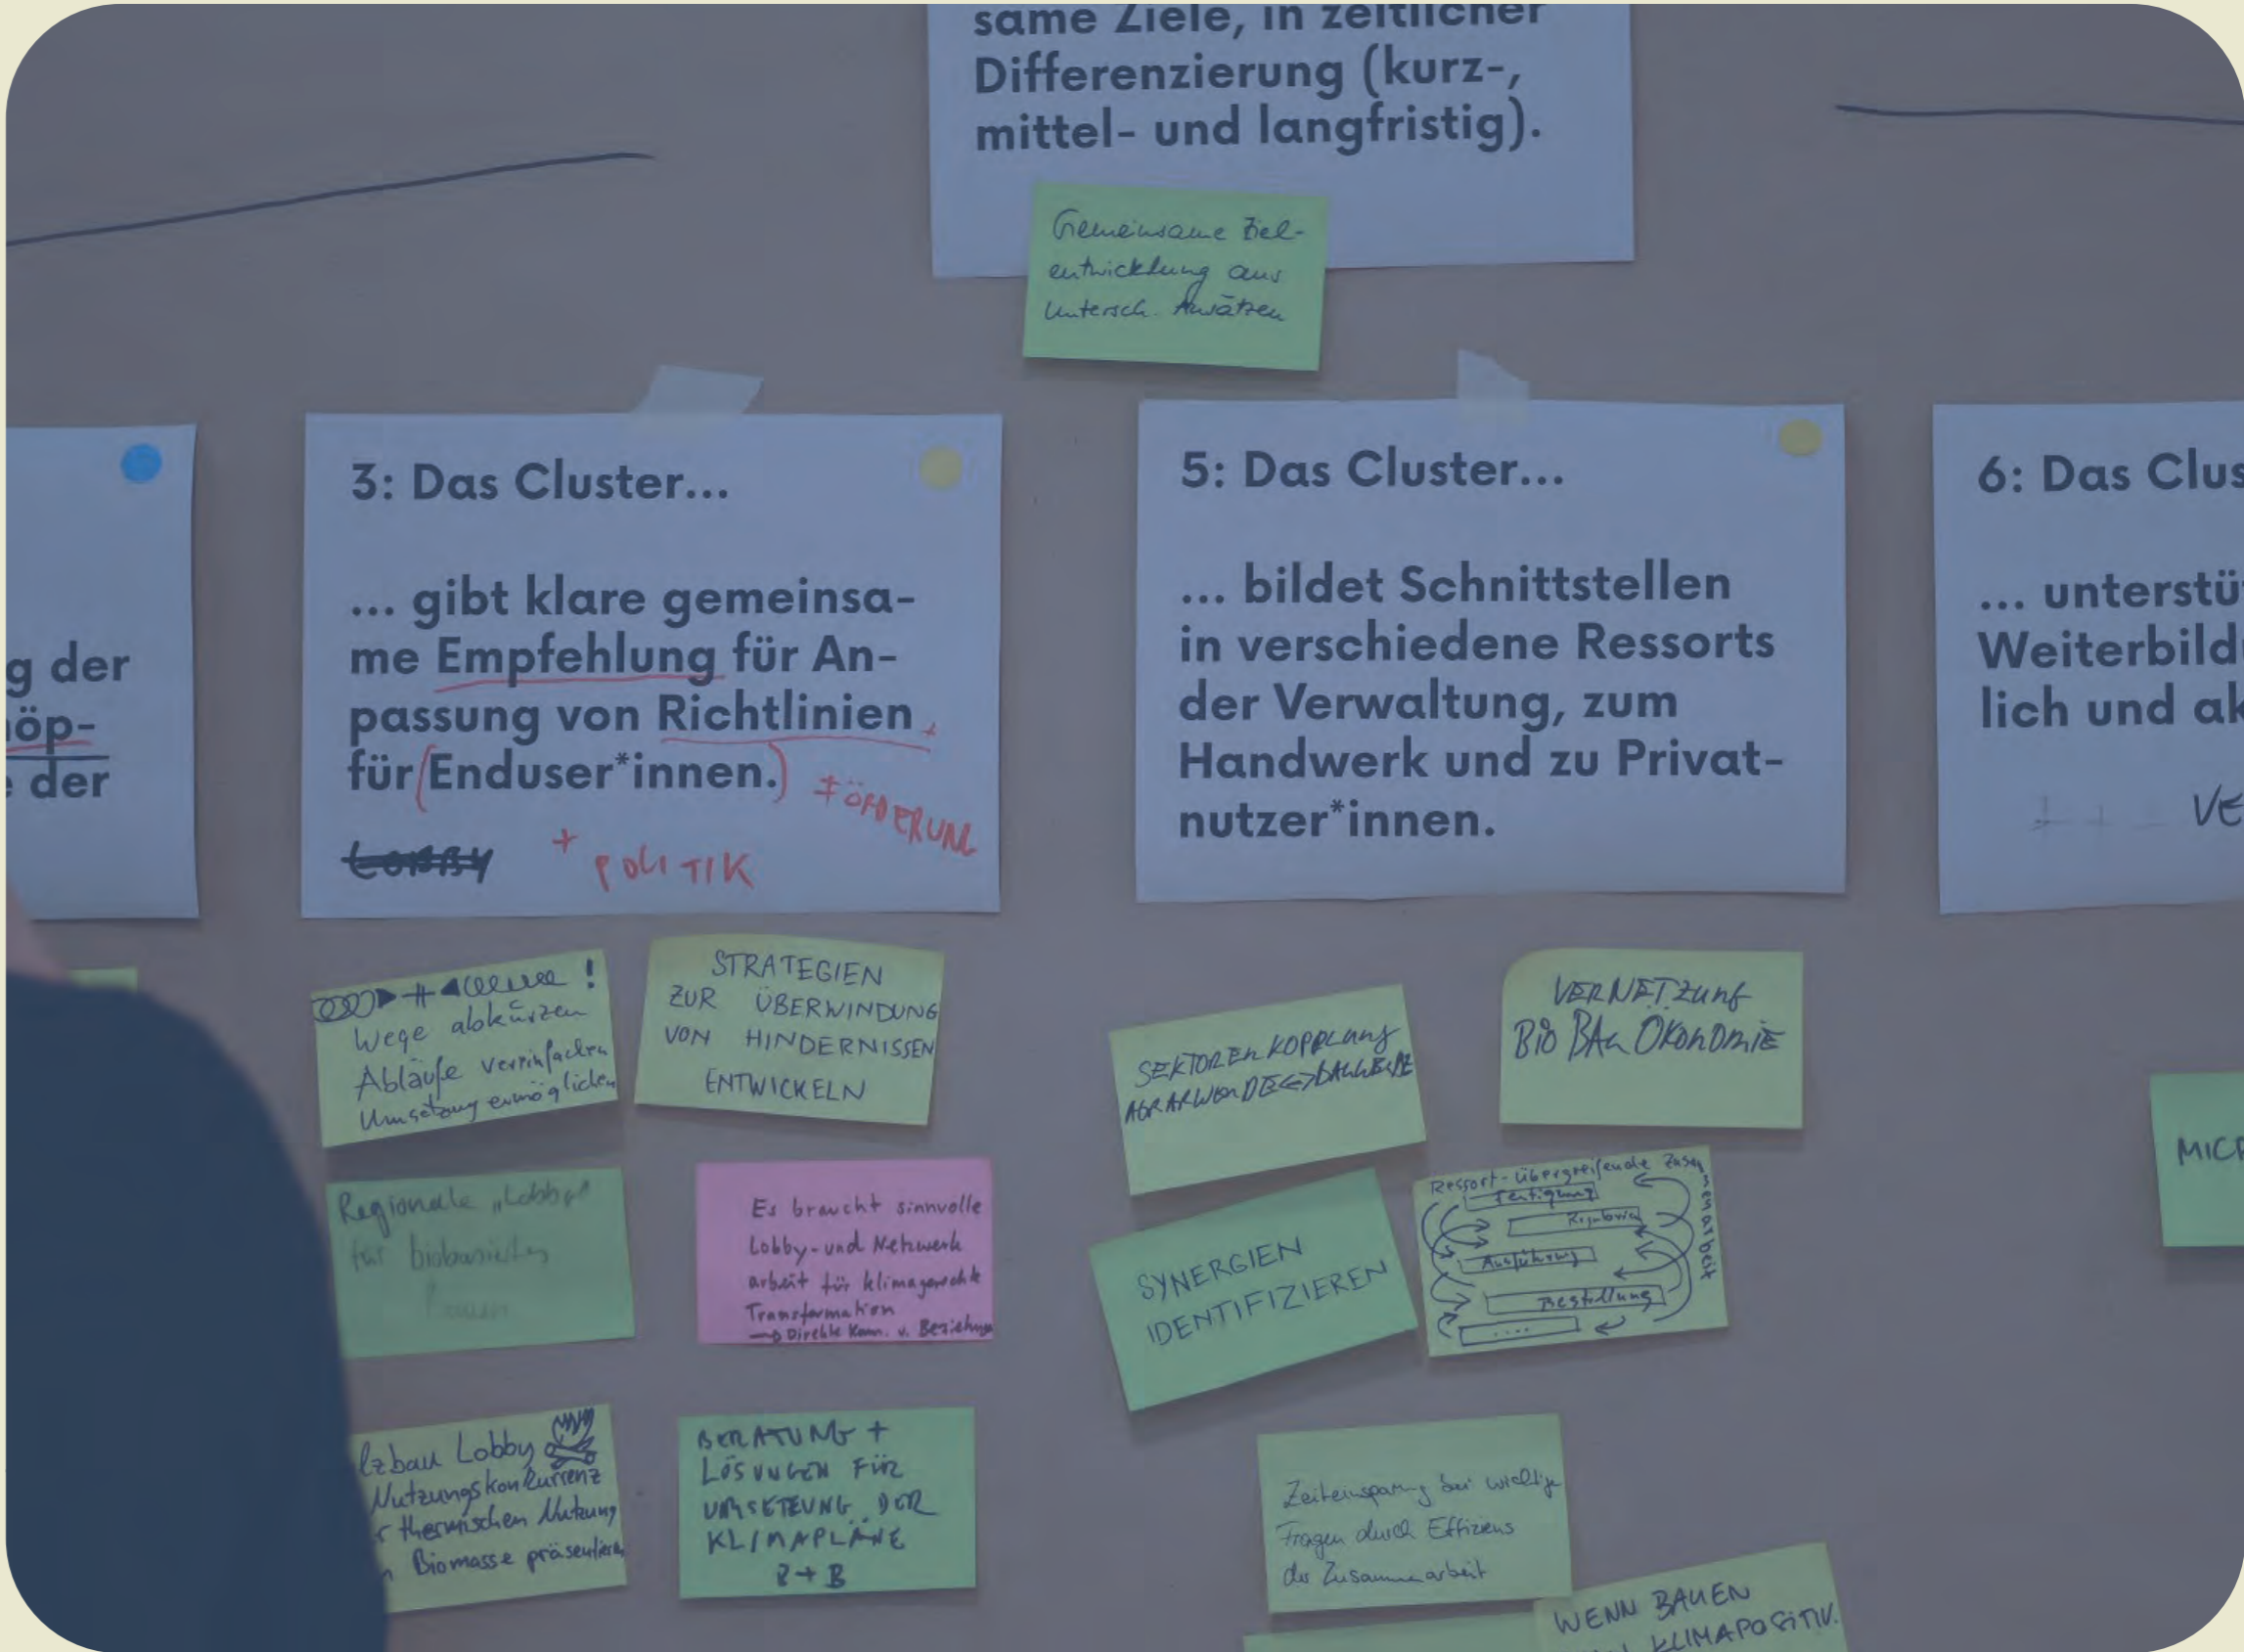 same Ziele, in zeitlicher
Differenzierung (kurz-,
mittel- und langfristig).
Gemeinsame Ziel-
entwicklung aus
untersch. Ansätzen
g der
höp-
der
3: Das Cluster...
... gibt klare gemeinsa-
me Empfehlung für An-
passung von Richtlinien +
für (Enduser*innen.)
FÖRDERUNG
LOBBY
+ POLITIK
5: Das Cluster...
... bildet Schnittstellen
in verschiedene Ressorts
der Verwaltung, zum
Handwerk und zu Privat-
nutzer*innen.
6: Das Clus
... unterstü
Weiterbild
lich und ak
VE
!
Wege abkürzen
Abläufe vereinfachen
Umsetzung ermöglichen
STRATEGIEN
ZUR ÜBERWINDUNG
VON HINDERNISSEN
ENTWICKELN
Regionale „Lobby"
für biobasiertes
Bauen
Es braucht sinnvolle
Lobby- und Netzwerk
arbeit für klimagerechte
Transformation
→ Direkte Komm. v. Beziehung
lzbau Lobby
Nutzungskonkurrenz
r thermischen Nutzung
n Biomasse präsentieren
BERATUNG +
LÖSUNGEN FÜR
UMSETZUNG DER
KLIMAPLÄNE
B
SEKTORENKOPPLung
AGRARWENDE <-> BAUWENDE
VERNETZung
BIO BAu ÖKONOMIE
SYNERGIEN
IDENTIFIZIEREN
Ressort-übergreifende Zusam
menarbeit
Fertigung
Ausführung
Bestellung
....
Zeiteinsparung bei wichtige
Fragen durch Effiziens
der Zusammenarbeit
WENN BAUEN
KLIMAPOSITIV.
MICR